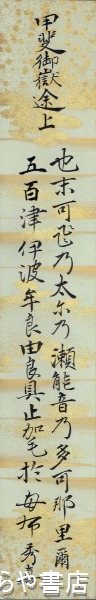 甲斐御嶽途上
也末可飛乃太尓乃瀬能音乃多可那里爾
五百津伊波牟良由良具止加毛於母布
秀真
らや書店